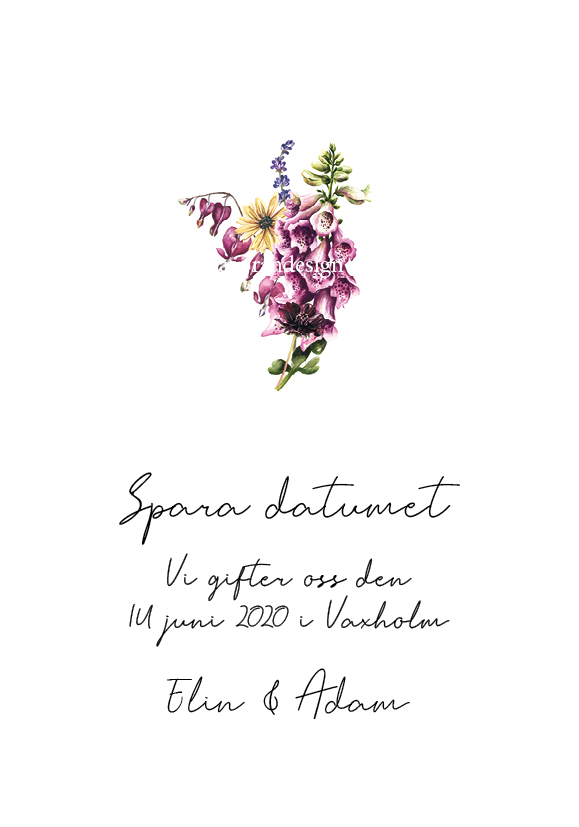 Spara datumet
Vi gifter oss den
14 juni 2020 i Vaxholm
Elin & Adam